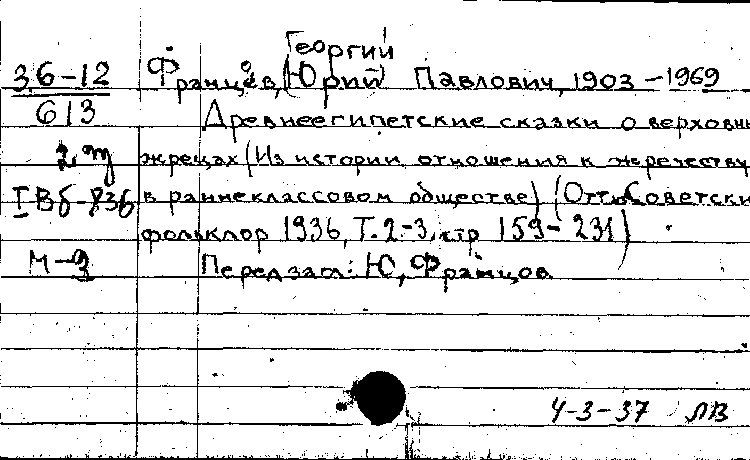 Георгий
36-12 Францев, (Юрий) Павлович, 1903-1969
613 Древнеегипетские сказки о верховны
жрецах (Из истории отношения к жречеству
IВб-836 в раннеклассовом обществе) (Отт: Советски
фольклор 1936, Т. 2-3, стр 159-231)
М-З Пер. д зам: Ю, Францов
4-3-37 ЛВ